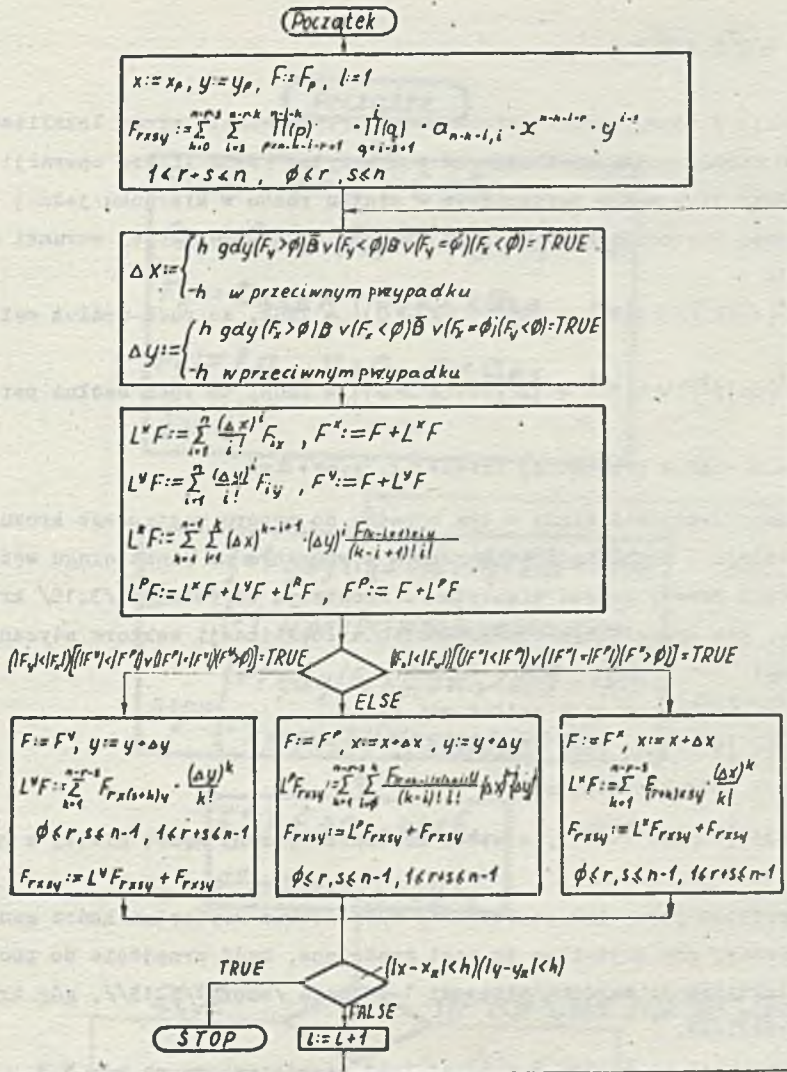 Początek
x:=xₚ, y:=yₚ, F:=Fₚ, l:=1
F_{rxsy} := \sum_{k=0}^{n-r-s} \sum_{i=s}^{n-r-k} \prod_{p=n-k-i-r+1}^{n-i-k} (p) · \prod_{q=i-s+1}^{i} (q) · a_{n-k-i,i} · x^{n-k-i-r} · y^{i-s}
1≤r+s≤n, ϕ≤r,s≤n
Δx:= { h gdy (F_y>ϕ)B̄ v (F_y<ϕ)B v (F_y=ϕ)(F_x<ϕ)=TRUE
-h w przeciwnym przypadku
Δy:= { h gdy (F_x>ϕ)B v (F_x<ϕ)B̄ v (F_x=ϕ)(F_y<ϕ)=TRUE
-h w przeciwnym przypadku
L^x F:= \sum_{i=1}^{n} \frac{(Δx)^i}{i!} F_{ix}, F^x:=F+L^x F
L^y F:= \sum_{i=1}^{n} \frac{(Δy)^i}{i!} F_{iy}, F^y:=F+L^y F
L^R F:= \sum_{k=1}^{n-1} \sum_{i=1}^{k} (Δx)^{k-i+1} · (Δy)^i \frac{F_{(k-i+1)xiy}}{(k-i+1)! i!}
L^P F:=L^x F+L^y F+L^R F, F^P:=F+L^P F
(|F_y|<|F_x|)[(|F^y|<|F^P|) v (|F^P|=|F^y|)(F^y>ϕ)]=TRUE
(|F_x|<|F_y|)[(|F^x|<|F^P|) v (|F^x|=|F^P|)(F^x>ϕ)]=TRUE
ELSE
F:=F^y, y:=y+Δy
L^y F:= \sum_{k=1}^{n-r-s} F_{rx(s+k)y} · \frac{(Δy)^k}{k!}
ϕ≤r,s≤n-1, 1≤r+s≤n-1
F_{rxsy}:=L^y F_{rxsy}+F_{rxsy}
F:=F^P, x:=x+Δx, y:=y+Δy
F_{rxsy}:=L^P F_{rxsy}+F_{rxsy}
ϕ≤r,s≤n-1, 1≤r+s≤n-1
F:=F^x, x:=x+Δx
L^x F:= \sum_{k=1}^{n-r-s} F_{(r+k)xsy} · \frac{(Δx)^k}{k!}
F_{rxsy}:=L^x F_{rxsy}+F_{rxsy}
ϕ≤r,s≤n-1, 1≤r+s≤n-1
TRUE
(|x-x_k|<h)(|y-y_k|<h)
FALSE
STOP
l:=l+1